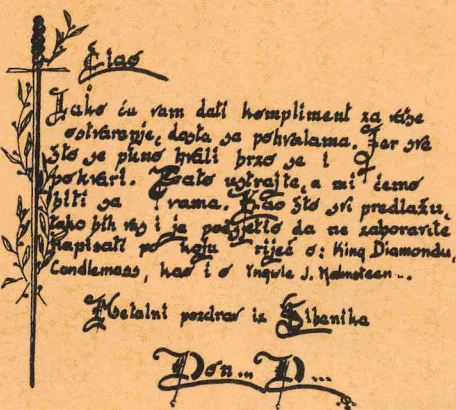 Ciao
Iako ću vam dati kompliment za vaše
ostvarenje, dosta sa pohvalama. Jer sve
što se puno hvali brzo se i
pokvari. Zato ustrajte, a mi ćemo
biti sa vama. Kao što svi predlažu,
tako bih vas i ja podsjetio da ne zaboravite
napisati po koju riječ o: King Diamondu,
Candlemass, kao i o Yngwie J. Malmsteen...
Metalni pozdrav iz Šibenika
Don... D...